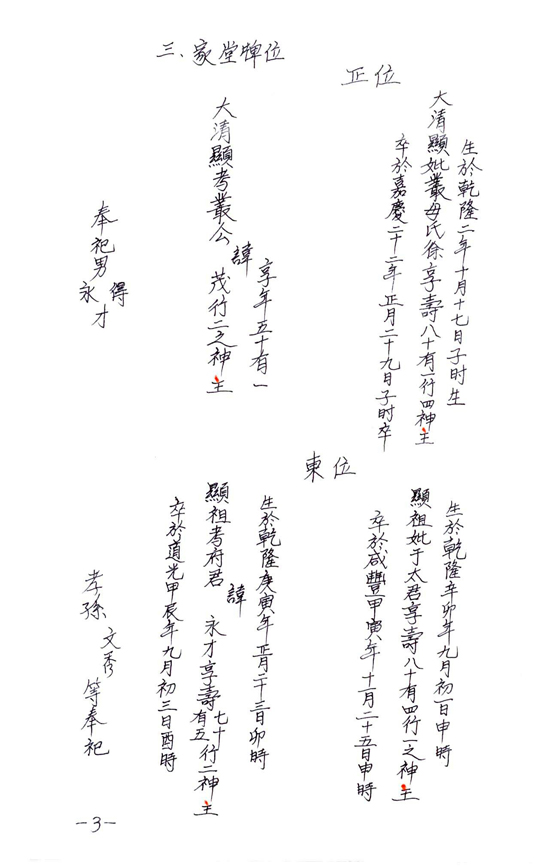 三、家堂牌位
正位
生於乾隆二年十月十七日子时生
大清顯妣叢母氏徐享壽八十有一行四神主
卒於嘉慶二十二年正月二十九日子时卒
享年五十有一
大清顯考叢公諱茂行二之神主
奉祀男得永才
東位
生於乾隆辛卯年九月初一日申時
顯祖妣于太君享壽八十有四行一之神主
卒於咸豐甲寅年十一月二十五日申時
生於乾隆庚寅年正月二十三日卯時
顯祖考府君諱永才享壽七十有五行二神主
卒於道光甲辰年九月初三日酉時
孝孫文秀等奉祀
-3-